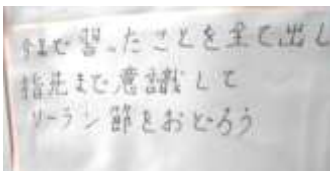 今まで習ったことを全て出し
指先まで意識して
ソーラン節をおどろう